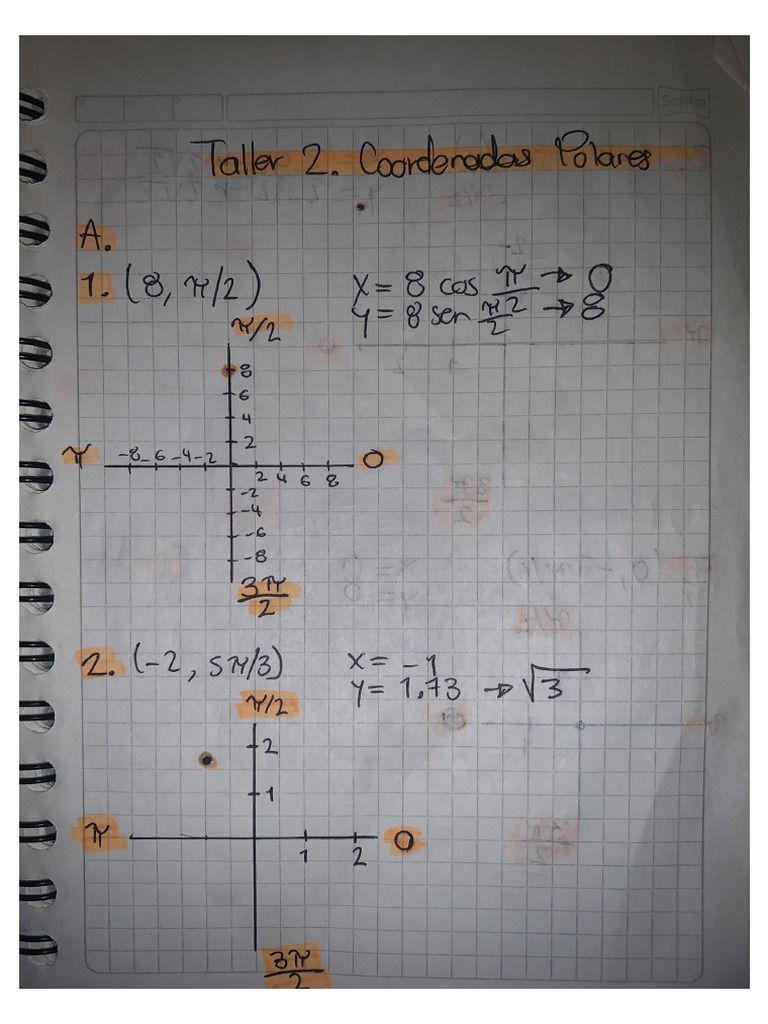 Scribe
Taller 2. Coordenadas Polares
A.
1. (8, π/2)
x = 8 cos π/2 → 0
y = 8 sen π2/2 → 8
π/2
8
6
4
2
π -8 -6 -4 -2
0
2 4 6 8
-2
-4
-6
-8
3π/2
2. (-2, 5π/3)
x = -1
y = 1.73 → √3
π/2
2
1
π
0
1 2
3π/2